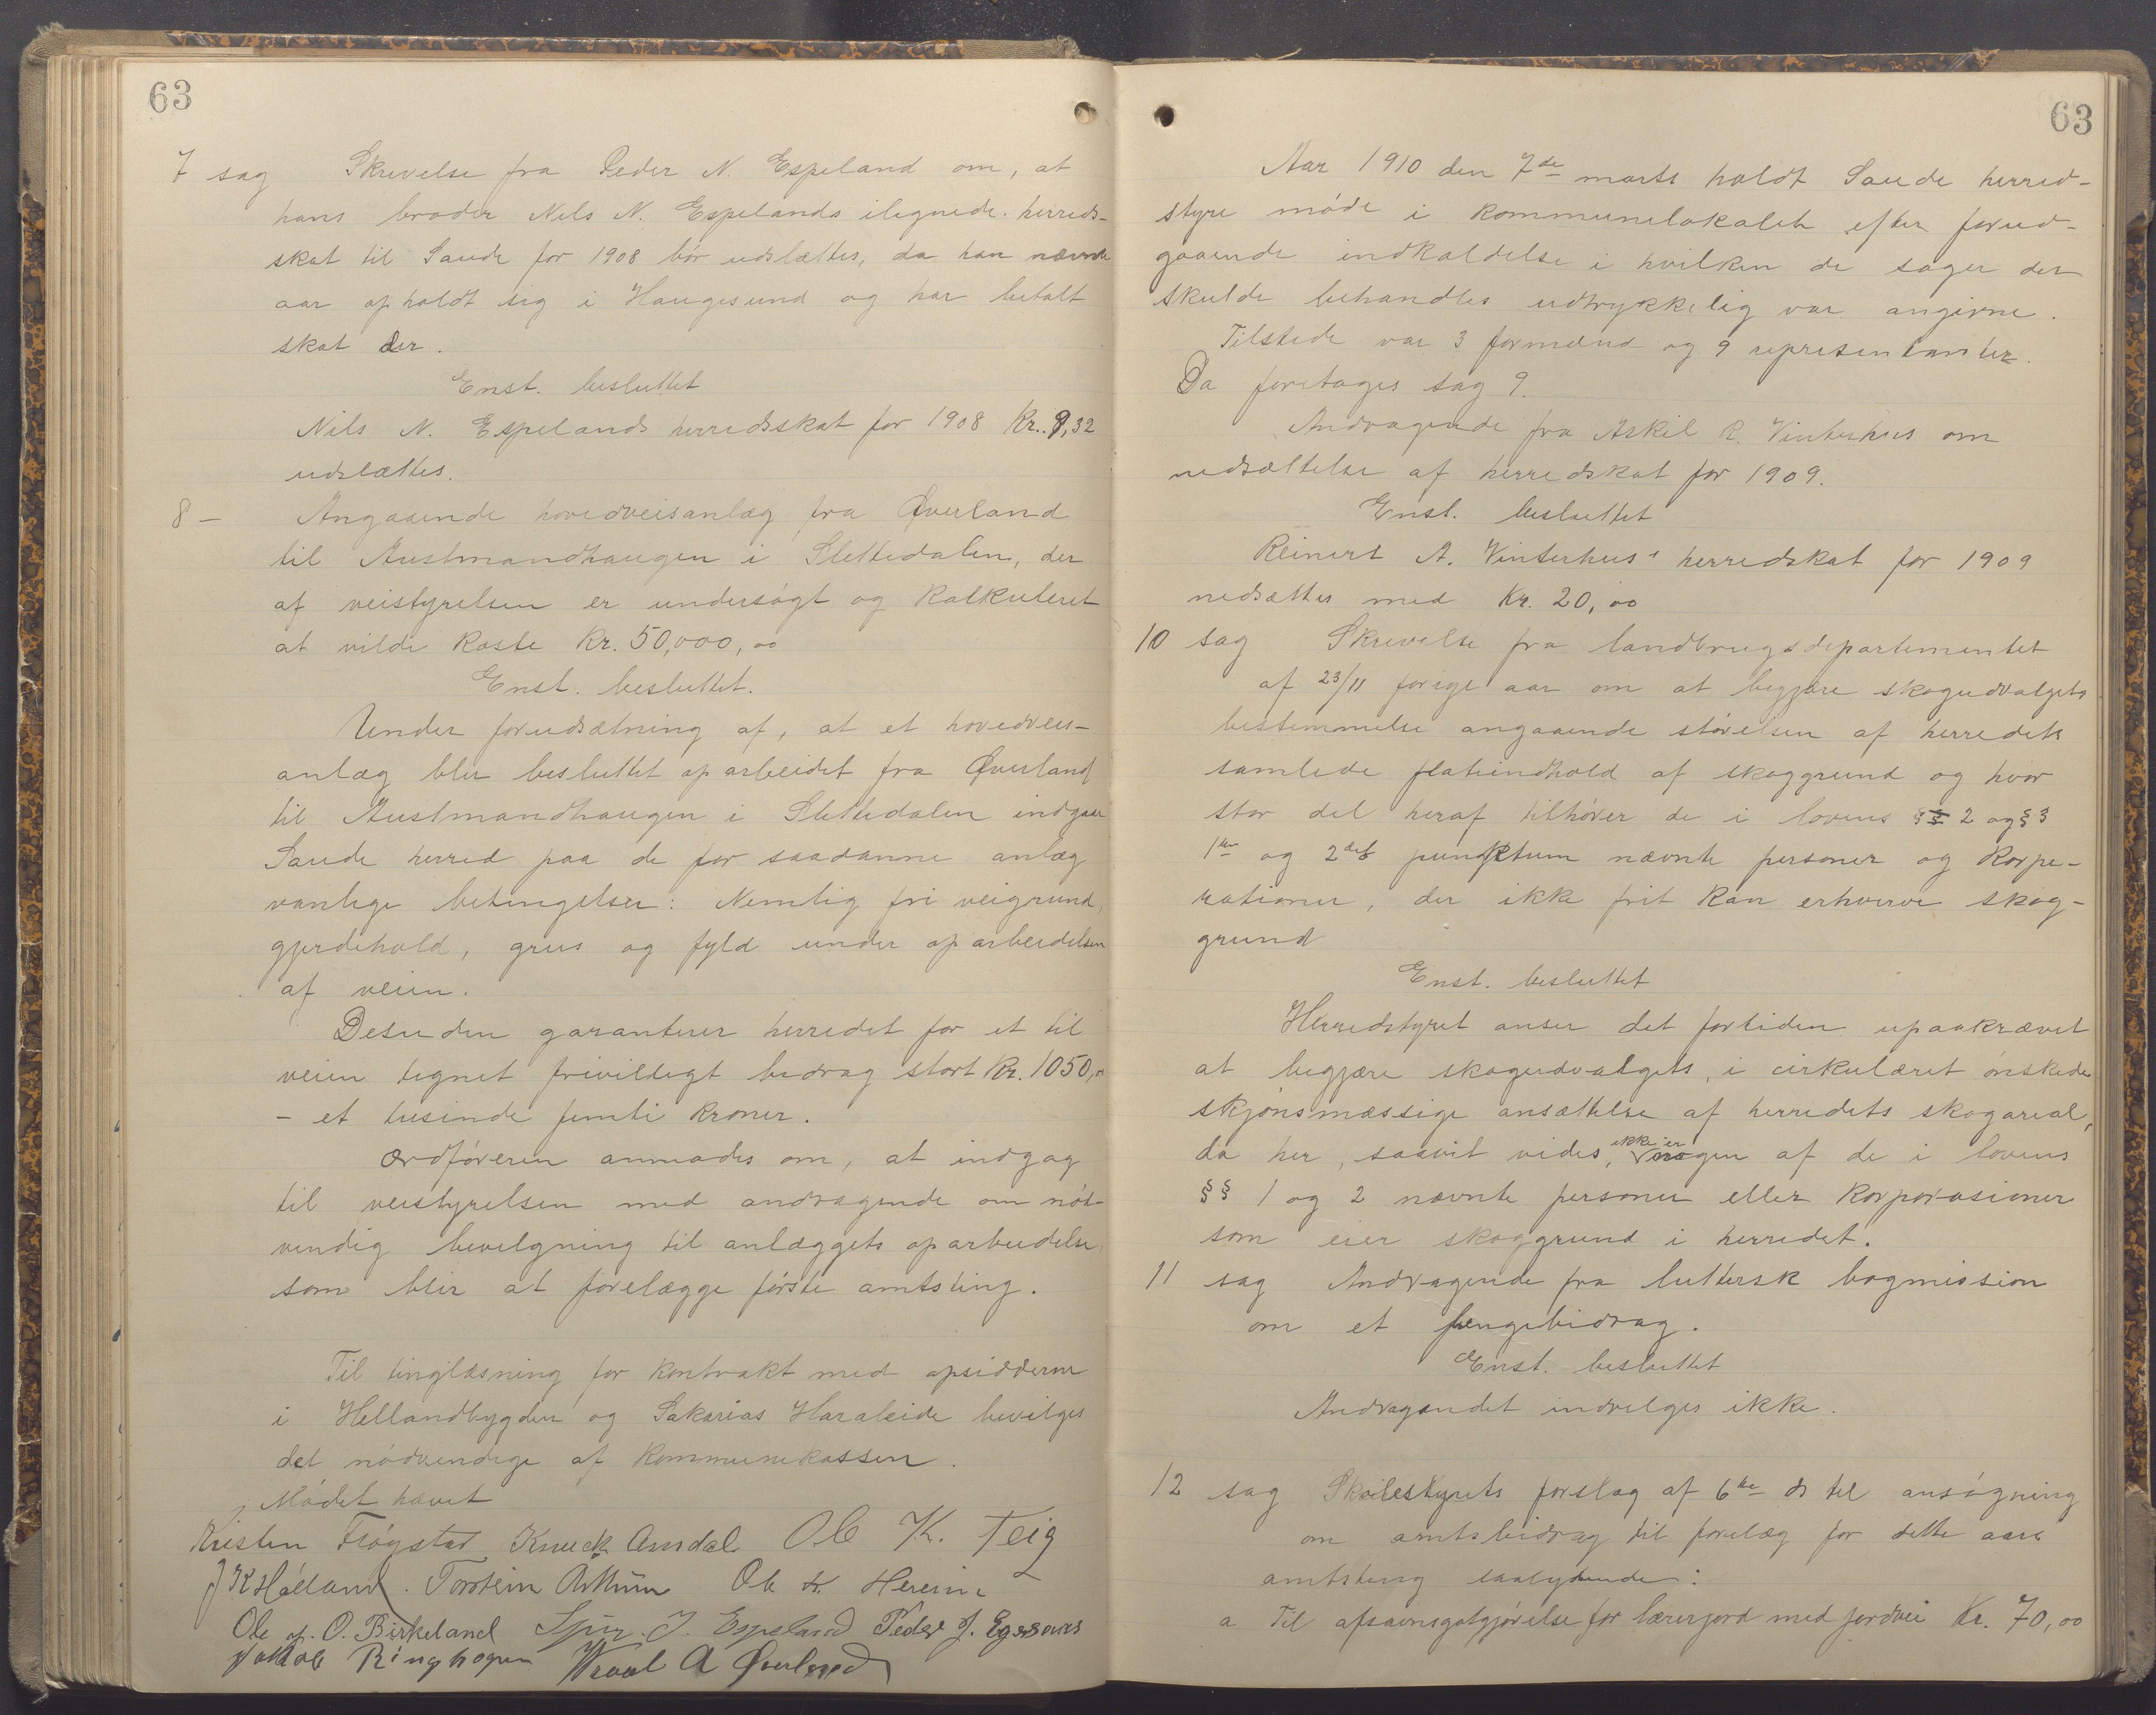 63
7 sag Skrivelse fra Peder N. Espeland om, at
hans broder Nils N. Espelands ilignede herreds-
skat til Saude for 1908 bör udslættes, da han nævnte
aar opholdt sig i Haugesund og har betalt
skat der.
Enst. besluttet
Nils N. Espelands herredsskat for 1908 Kr. 9,32
udslættes.
8 – Angaaende hovedveisanlæg fra Øverland
til Austmandhaugen i Slettedalen, der
af veistyrelsen er undersögt og kalkuleret
at vilde koste Kr. 50,000,00
Enst. besluttet.
Under forudsætning af, at et hovedveis-
anlæg blir besluttet oparbeidet fra Øverland
til Austmandhaugen i Slettedalen indgaar
Saude herred paa de for saadanne anlæg
vanlige betingelser: Nemlig fri veigrund,
gjerdehold, grus og fyld under oparbeidelsen
af veien.
Desuden garanterer herredet for et til
veien tegnet frivilligt bidrag stort Kr. 1050,00
– et tusinde femti kroner.
Ordföreren anmodes om, at indgaa
til veistyrelsen med andragende om nöd-
vendig bevilgning til anlæggets oparbeidelse,
som blir at forelægge förste amtsting.
Til tinglæsning for kontrakt med opsidderne
i Hellandbygden og Sakarias Haraleide bevilges
det nödvendige af kommunekassen.
Mödet hævet
Kristen Frögstad Knut K. Amdal Ole K. Teig
J K Hölland. Torstein Arthun Ole K. Hereim
Ole O. Birkeland J. Espeland Peder J.
Jakob Ringhagen A Øverland
63
Aar 1910 den 7de marts holdt Saude herred-
styre möde i kommunelokalet efter forud-
gaaende indkaldelse i hvilken de sager der
skulde behandles udtrykkelig var angivne.
Tilstede var 3 formænd og 9 representanter.
Da foretages sag 9.
Andragende fra Askil R. Vinterhus om
nedsættelse af herredskat for 1909.
Enst. besluttet
Reinert A. Vinterhus's herredskat for 1909
nedsættes med Kr. 20,00
10 sag Skrivelse fra landbrugsdepartementet
af 23/11 forige aar om at begjære skogudvalgets
bestemmelse angaaende störelsen af herredets
samlede flateindhold af skoggrund og hvor
stor del heraf tilhörer de i lovens §§ 2 og § 3
1ste og 2det punktum nævnte personer og korpe-
rationer, der ikke frit kan erhverve skog-
grund
Enst. besluttet
Herredstyret anser det fortiden upaakrævet
at begjære skogudvalgets, i cirkulæret önskede
skjönsmæssige ansættelse af herredets skogareal,
da her, saavit vides, ikke er nogen af de i lovens
§§ 1 og 2 nævnte personer eller korporasioner
som eier skoggrund i herredet.
11 sag Andragende fra luttersk bogmission
om et pengebidrag.
Enst. besluttet
Andragendet indvilges ikke.
12 sag Skolestyrets forslag af 6te ds til ansögning
om amtsbidrag til forelæg for dette aars
amtsting saalydende:
a Til afsavnsgodtgjörelse for lærerjord med jordvei Kr. 70,00